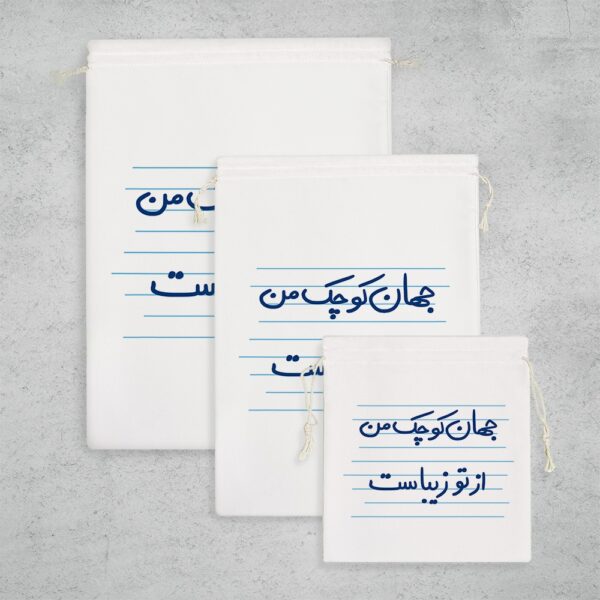 من
ست
جهان کوچک من
ست
جهان کوچک من
از تو زیباست